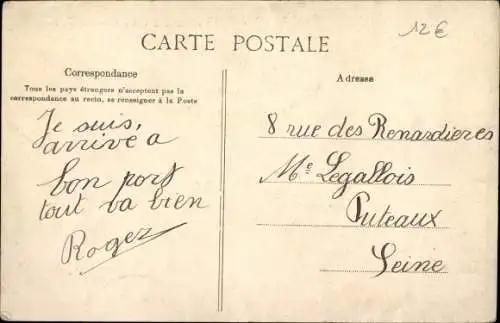 12 €
CARTE POSTALE
Correspondance
Tous les pays étrangers n'acceptent pas la
correspondance au recto, se renseigner à la Poste
Je suis,
arrive a
bon port
tout va bien
Roger
Adresse
8 rue des Renardieres
Me Legallois
Puteaux
Seine